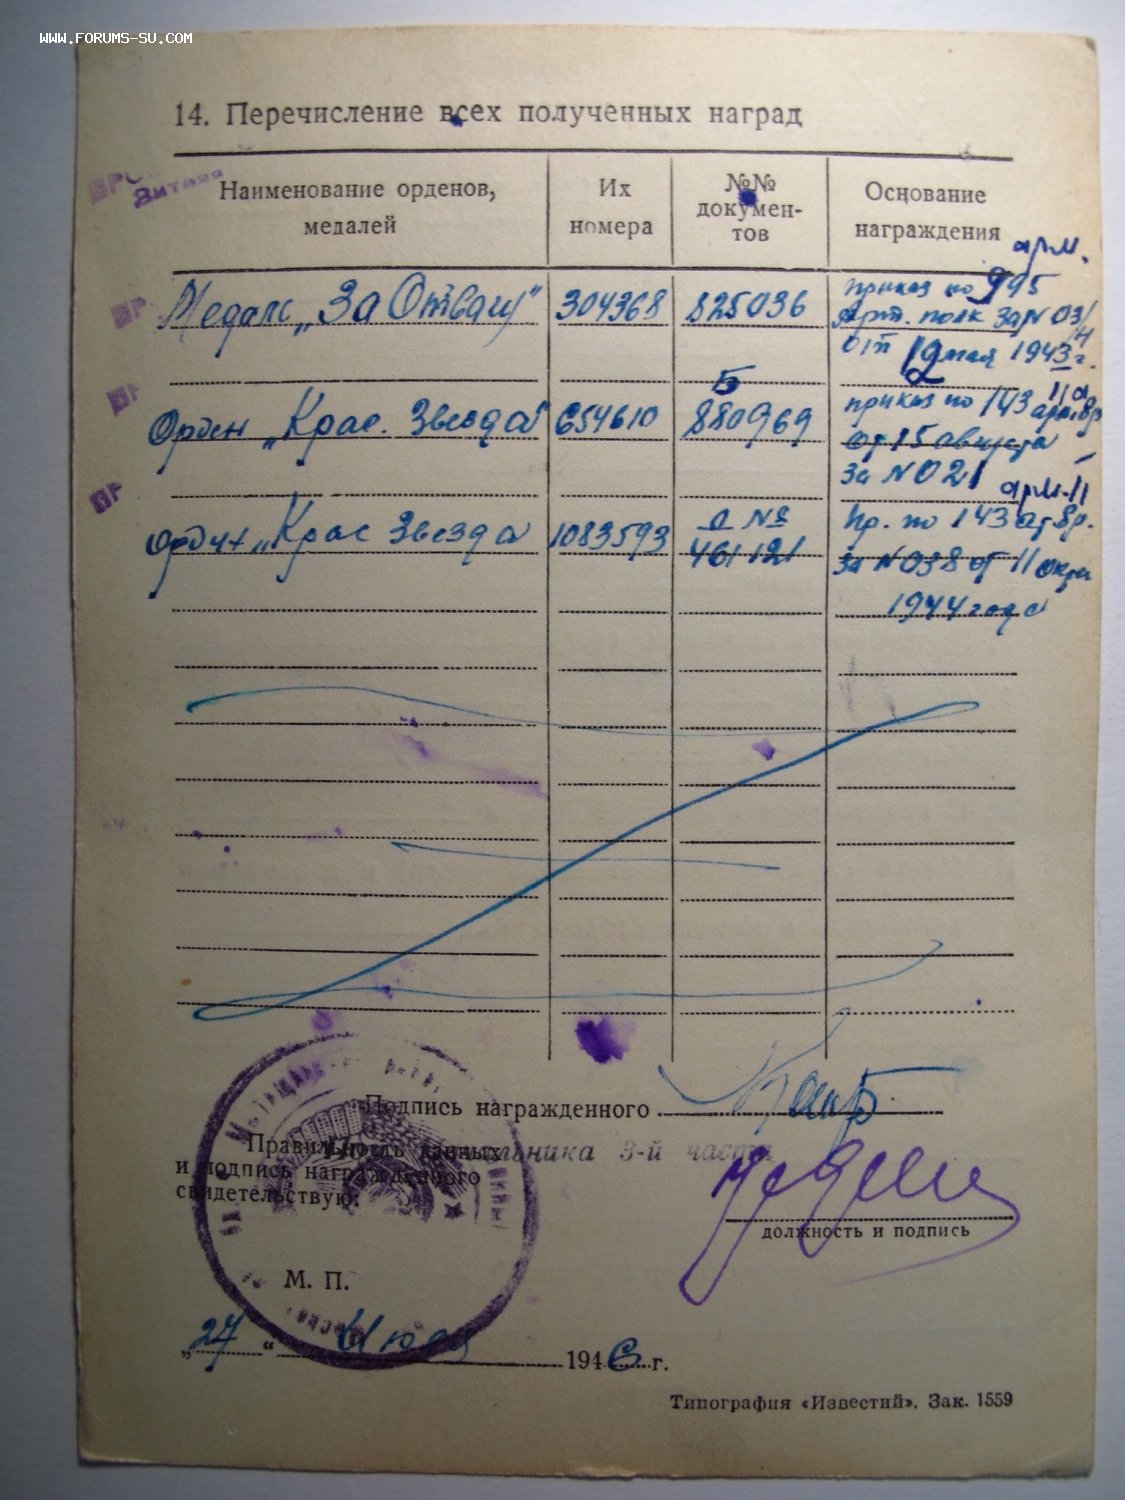 www.forums-su.com
14. Перечисление всех полученных наград
Наименование орденов, медалей
Их номера
№№ документов
Основание награждения
Медаль „За Отвагу"
304368
825036
арм.
приказ по 995
арт. полк за № 03/н
от 12 мая 1943 г.
Орден „Крас. Звезда"
654610
Б
880969
приказ по 143
от 15 августа
за № 021
Орден „Крас Звезда
1083593
Д №
461121
арм.
Пр. по 143
за № 038 от 11 октя
1944 года
Подпись награжденного
Правильность данных
и подпись награжденного
свидетельствую:
начальника 3-й части
должность и подпись
М. П.
„27" Июля 1946 г.
Типография «Известий». Зак. 1559